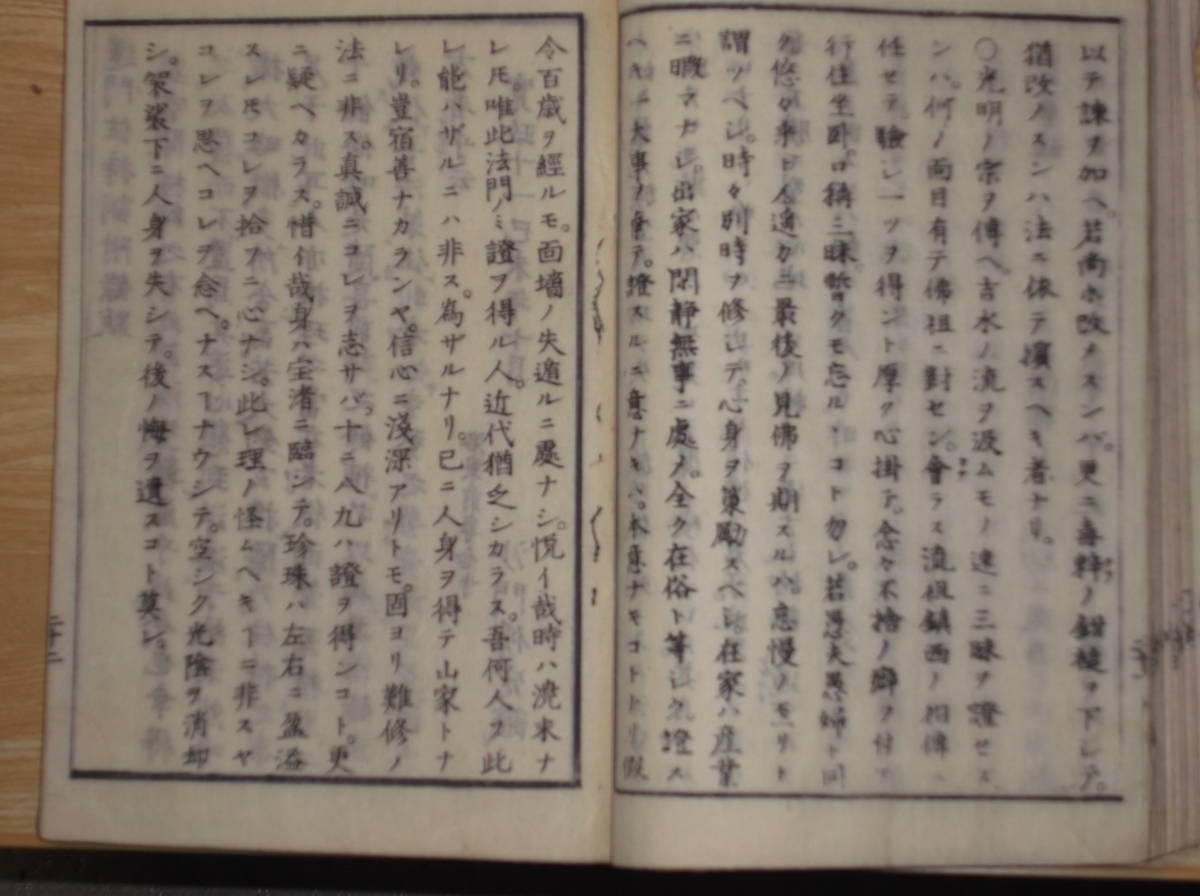 以テ諫ヲ加ヘ。若尚ホ改メスンバ。更ニ毒辣ノ鉗槌ヲ下シテ。
猶改メスンハ法ニ依テ擯スヘキ者ナリ。
〇光明ノ宗ヲ傳ヘ。吉水ノ流ヲ汲ムモノ速ニ三昧ヲ證セス
ンハ。何ノ面目有テ佛祖ニ對セン。會ラス流祖鎮西ノ相傳ニ
任セテ。驗シ一ツヲ得ント厚ク心掛テ。念々不捨ノ癖ヲ付テ
行住坐臥口稱三昧暫クモ忘ルヽコト勿レ。若愚夫愚婦ト同
ク悠々來ト人遥カニ最後ノ見佛ヲ期スルハ。怠慢ノモノト
謂ツベシ。時々別時ヲ修シテ。心身ヲ策勵スベシ。在家ハ産業
ニ暇ナカレ。出家ハ閑静無事ニ處メ。全ク在俗ト等シク。證ス
ヘキ一大事ヲ棄テ。證スルニ意ナキハ。本意ナキコトトリ假
令百歳ヲ經ルモ。面墻ノ失遁ルニ處ナシ。悦イ哉時ハ澆末ナ
レ𪜈。唯此法門ノミ證ヲ得ル人。近代猶乏シカラス。吾何人ヲ此
レ能ハザルニハ非ス。為ザルナリ。已ニ人身ヲ得テ山家トナ
レリ。豈宿善ナカランヤ。信心ニ淺深アリトモ。固ヨリ難修ノ
法ニ非ス。真誠ニコレヲ志サバ。十ニ八九ハ證ヲ得ンコト。更
ニ疑ベカラス。惜イ哉身ハ宝渚ニ臨ンテ。珍珠ハ左右ニ盈溢
スレ𪜈コレヲ拾フニ心ナシ。此レ理ノ怪ムヘキヿニ非スヤ
コレヲ思ヘコレヲ念ヘ。ナスヿナウシテ。空シク光陰ヲ消却
シ。袈裟下ニ人身ヲ失シテ。後ノ悔ヲ遺スコト莫レ。
二十二